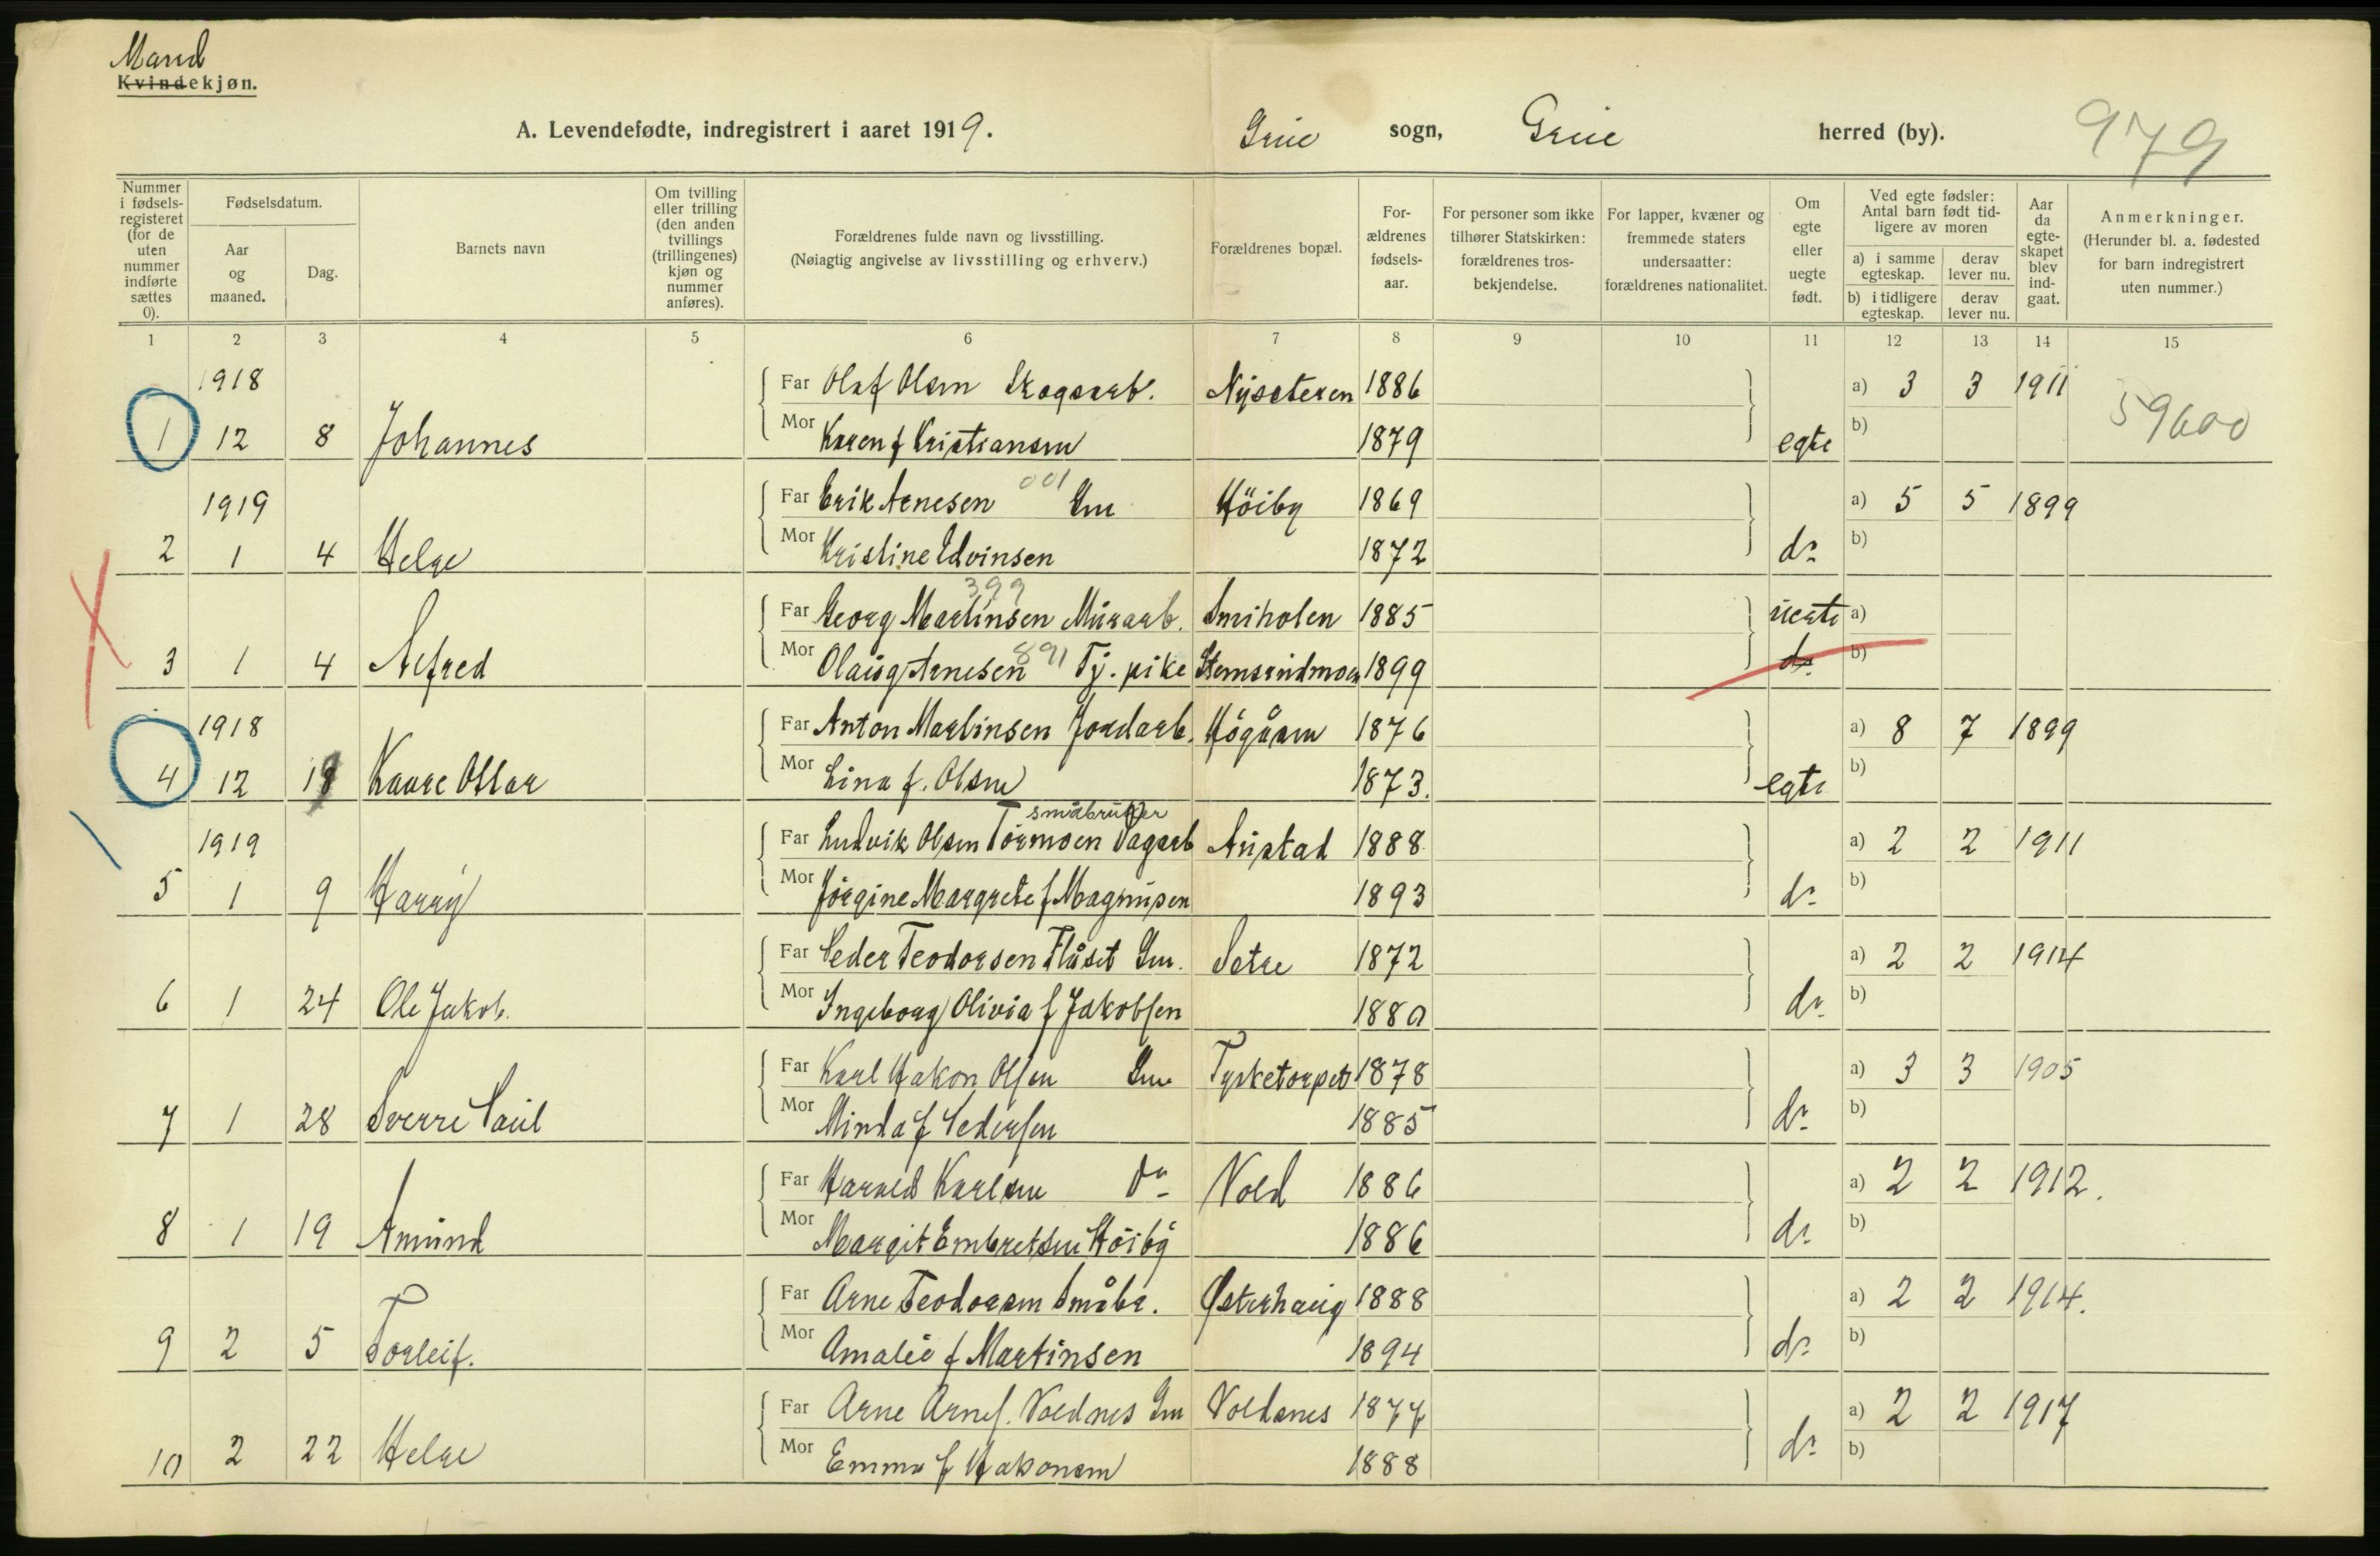 Mand
Kvindekjøn.
A. Levendefødte, indregistrert i aaret 1919. Grue sogn, Grue herred (by). 979
Nummer i fødselsregisteret (for de uten nummer indførte sættes 0).
Fødselsdatum.
Aar og maaned.
Dag.
Barnets navn
Om tvilling eller trilling (den anden tvillings (trillingenes) kjøn og nummer anføres).
Forældrenes fulde navn og livsstilling.
(Nøiagtig angivelse av livsstilling og erhverv.)
Forældrenes bopæl.
Forældrenes fødselsaar.
For personer som ikke tilhører Statskirken: forældrenes trosbekjendelse.
For lapper, kvæner og fremmede staters undersaatter: forældrenes nationalitet.
Om egte eller uegte født.
Ved egte fødsler: Antal barn født tidligere av moren
a) i samme egteskap. derav lever nu.
b) i tidligere egteskap. derav lever nu.
Aar da egteskapet blev indgaat.
Anmerkninger.
(Herunder bl. a. fødested for barn indregistrert uten nummer.)
1 2 3 4 5 6 7 8 9 10 11 12 13 14 15
1918 Far Olaf Olsen Skogsarb. Nysæteren 1886 a) 3 3 1911
1 12 8 Johannes Mor Karen f Kristiansen 1879 egte b) 59600
001
1919 Far Erik Arnesen Gm Höiby 1869 a) 5 5 1899
2 1 4 Helge Mor Kristine Edvinsen 1872 do b)
399
Far Georg Martinsen Murarb. Smiholen 1885 uegte a)
3 1 4 Alfred Mor Olaug Arnesen 891 Tj. pike Stemsrudmoen 1899 do b)
1918 Far Anton Martinsen Jordarb. Högåsen 1876 a) 8 7 1899
4 12 18 Kaare Ottar Mor Lina f. Olsen 1873. egte b)
småbruker
1919 Far Ludvik Olsen Tormoen Dagarb Austad 1888 a) 2 2 1911
5 1 9 Harry Mor Jörgine Margrete f Magnusen 1893 do b)
Far Peder Teodorsen Flåset Gm. Sætre 1872 a) 2 2 1914
6 1 24 Ole Jakob. Mor Ingeborg Olivia f Jakobsen 1880 do b)
Far Karl Hakon Olsen Gm Tysketorpet 1878 a) 3 3 1905
7 1 28 Sverre Paul Mor Minda f Pedersen 1885 do b)
Far Harald Karlsen Do Vold 1886 a) 2 2 1912.
8 1 19 Amund Mor Margit Embretsen Höiby 1886 do b)
Far Arne Teodorsen Småbr. Østerhaug 1888 a) 2 2 1914.
9 2 5 Torleif. Mor Amalie f Martinsen 1894 do b)
Far Arne Arnes. Voldnes Gm Voldsnes 1877 a) 2 2 1917
10 2 22 Helge Mor Emma f Hakonsen 1888 do b)